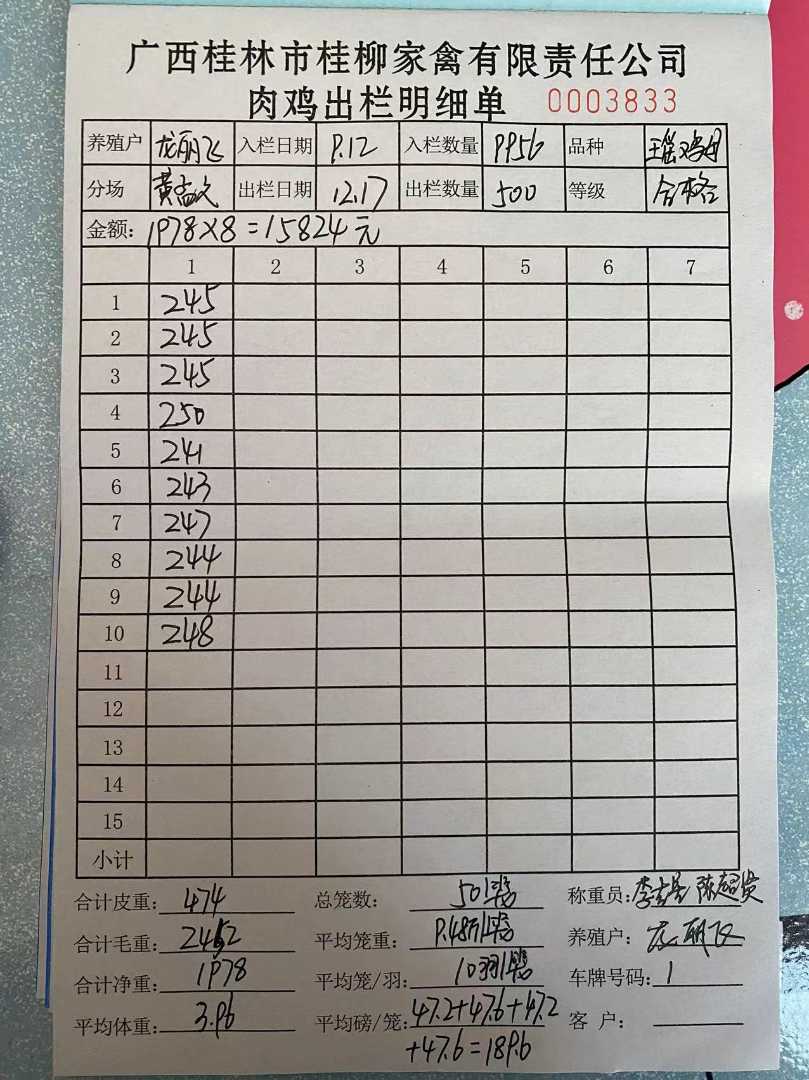 广西桂林市桂柳家禽有限责任公司
肉鸡出栏明细单 0003833
养殖户 龙丽飞 入栏日期 9.12 入栏数量 9956 品种
分场 黄孟文 出栏日期 12.17 出栏数量 500 等级 合格
金额: 1978×8=15824元
1 2 3 4 5 6 7
1 245
2 245
3 245
4 250
5 241
6 243
7 247
8 244
9 244
10 248
11
12
13
14
15
小计
合计皮重: 474 总笼数: 50 称重员:
合计毛重: 2452 平均笼重: 9.48 养殖户: 龙丽飞
合计净重: 1978 平均笼/羽: 10羽 车牌号码: 1
平均体重: 3.96 平均磅/笼: 47.2+47.6+47.2 客 户:
+47.6=189.6